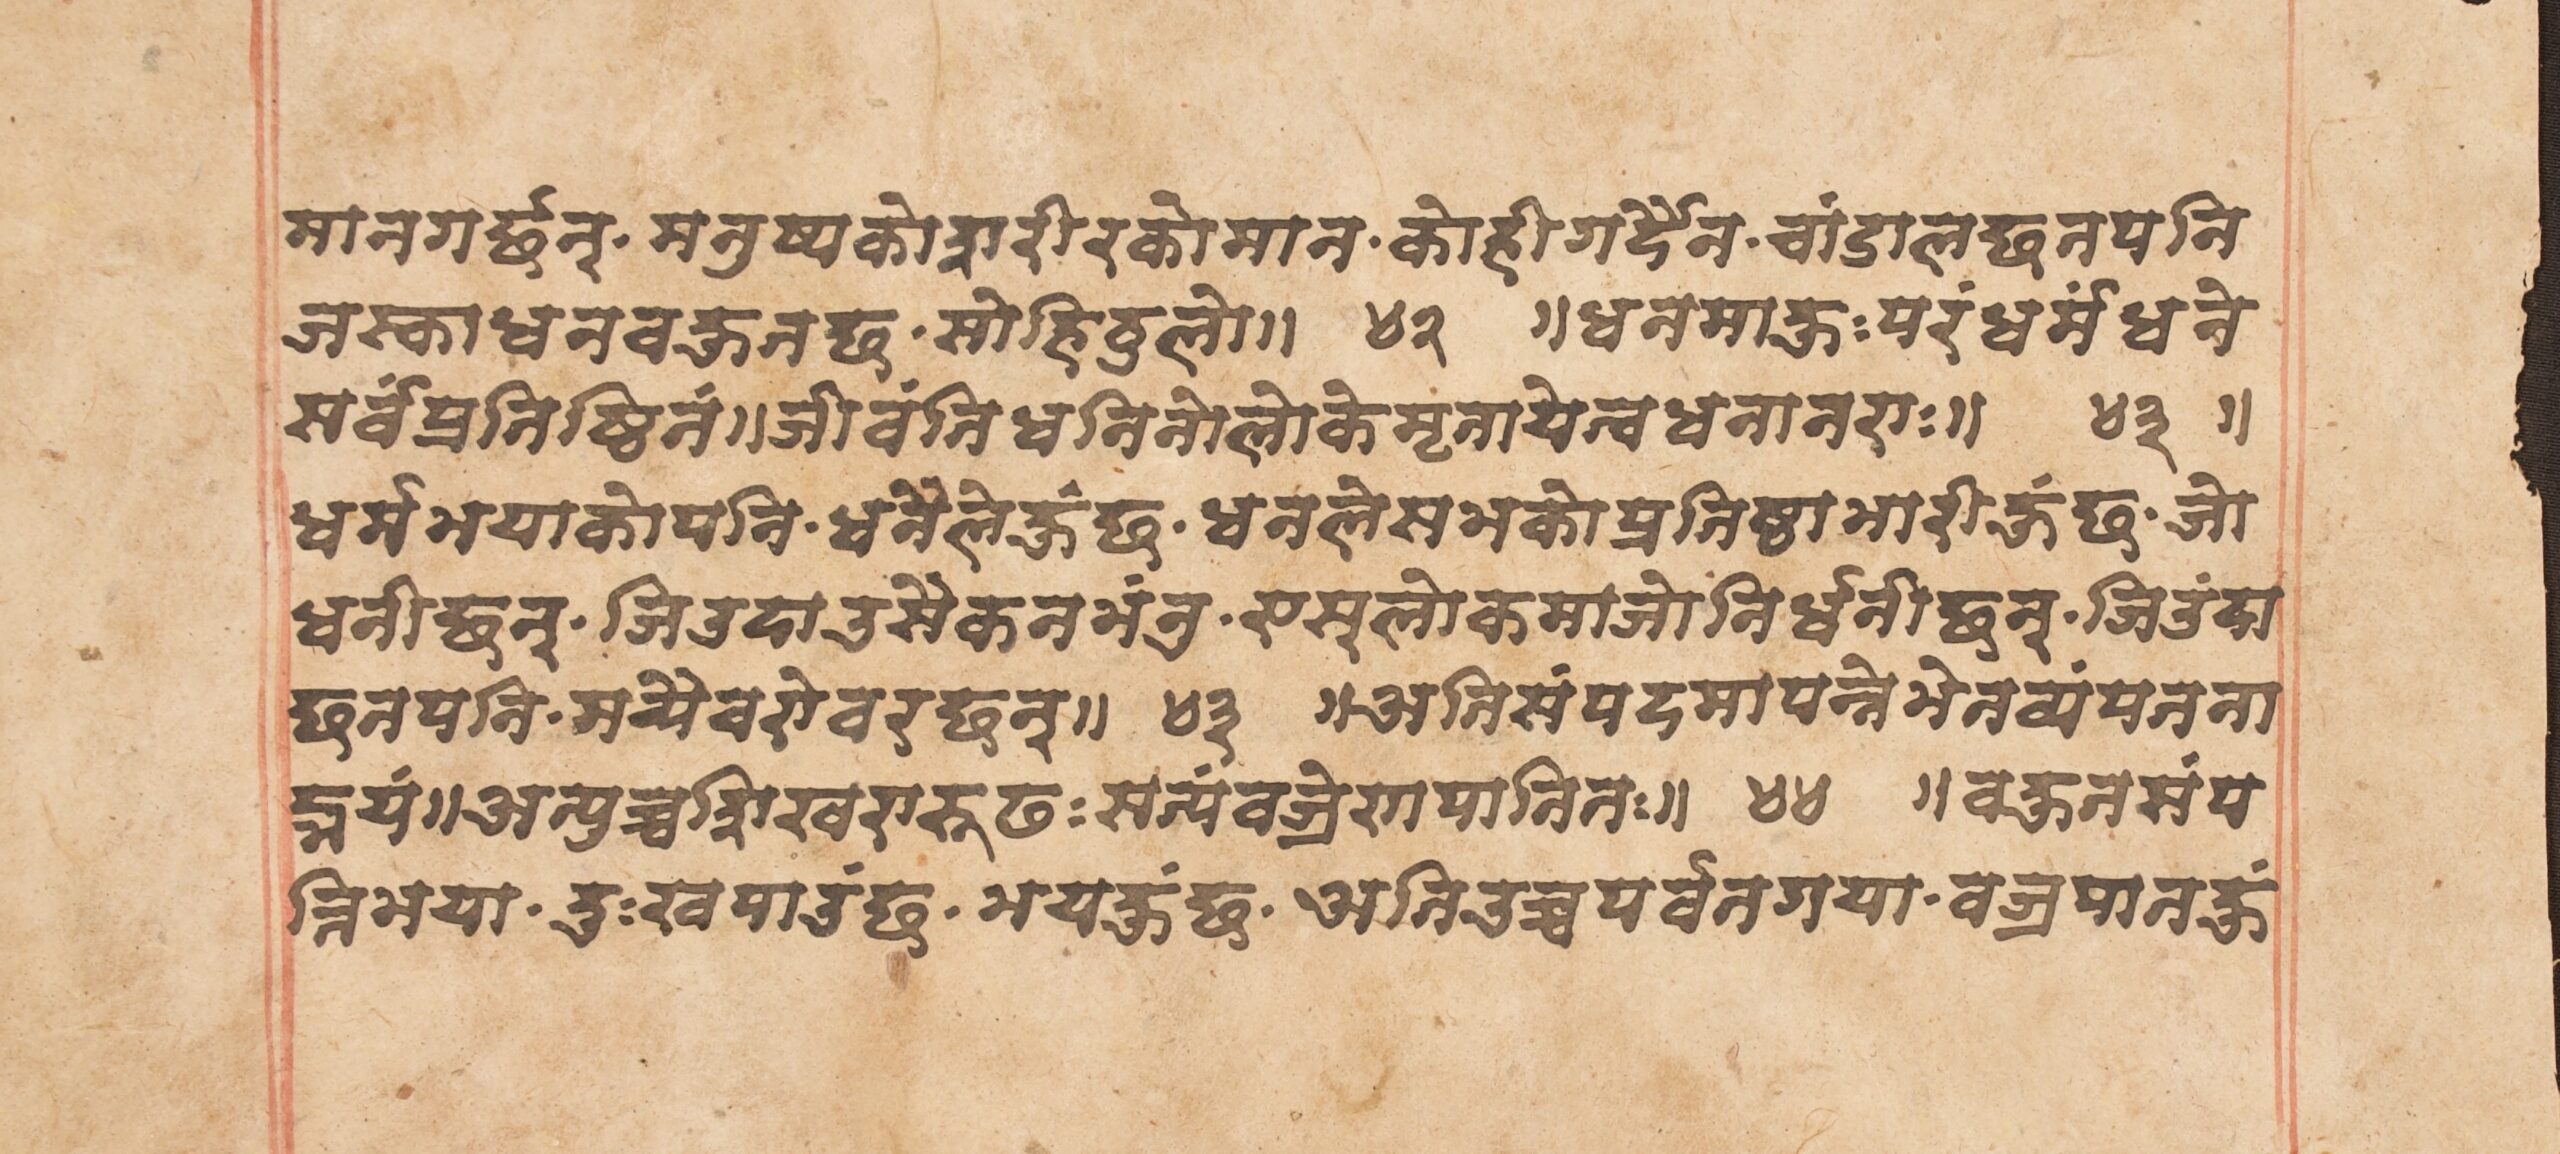 मानगर्छन्· मनुष्यकोशरीरकोमान· कोहीगर्दैन· चांडालछनपनि
जस्काधनवहुतछ· सोहिठुलो॥ ४२ ॥धनमाहुःपरंधर्मंधने
सर्वंप्रतिष्ठितं॥जीवंतिधनिनोलोकेमृतायेत्वधनानराः॥ ४३ ॥
धर्मभयाकोपनि· धनैलेहुंछ· धनलेसभकोप्रतिष्ठाभारीहुंछ· जो
धनीछन्· जिउदाउसैकनभंनु· एस्लोकमाजोनिर्धनीछन्· जिउंदा
छनपनि· मर्‍यैवरोवरछन्॥ ४३ ॥अतिसंपदमापन्नेभेतव्यंपतना
द्भयं॥अत्युच्चशिखरारूढः सत्यंवज्रेणपातितः॥ ४४ ॥वहुतसंप
त्तिभया· दुःखपाउंछ· भयहुंछ· अतिउच्चपर्वतगया· वज्रपातहुं